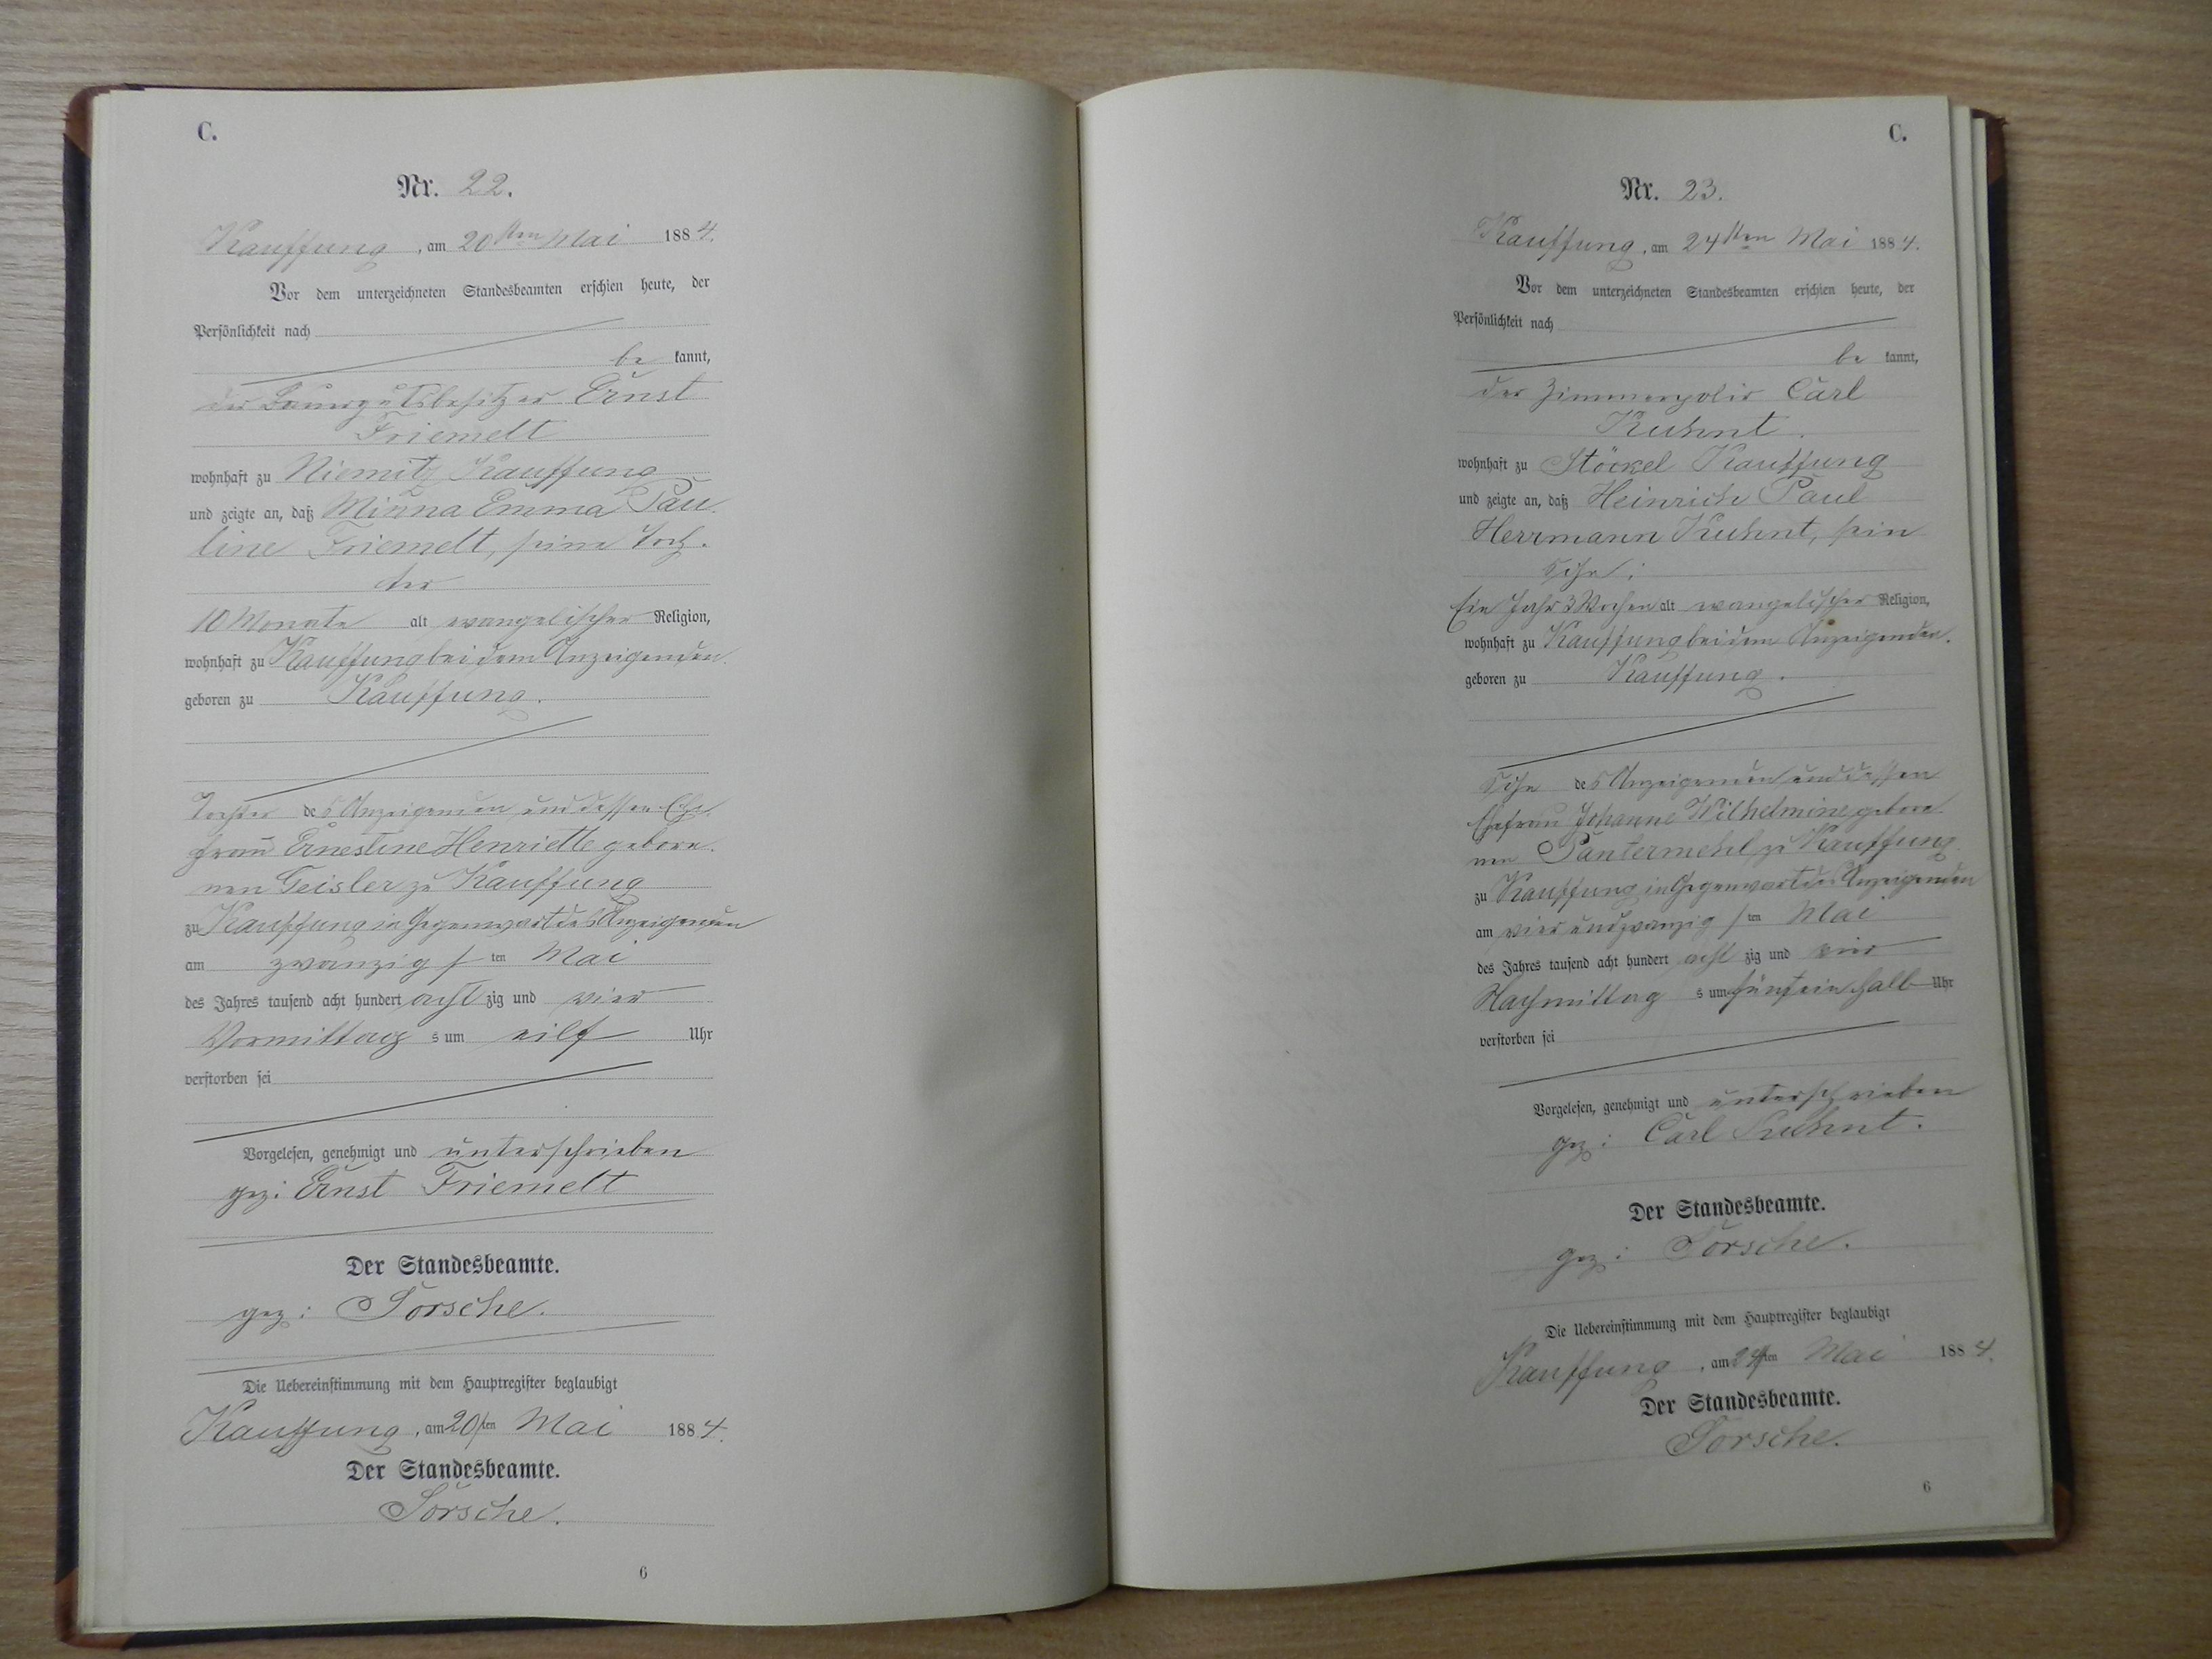 C.
Nr. 22.
Kauffung, am 20sten Mai 1884.
Vor dem unterzeichneten Standesbeamten erschien heute, der
Persönlichkeit nach
be kannt,
der Bauergutsbesitzer Ernst
Friemelt
wohnhaft zu Niemitz Kauffung
und zeigte an, daß Minna Emma Pau-
line Friemelt, seine Toch-
ter
10 Monate alt evangelischer Religion,
wohnhaft zu Kauffung bei dem Anzeigenden.
geboren zu Kauffung.
Tochter des Anzeigenden und dessen Ehe-
frau Ernestine Henriette gebore-
nen Geisler zu Kauffung
zu Kauffung in Gegenwart des Anzeigenden
am zwanzigsten Mai
des Jahres tausend acht hundert achtzig und vier
Vormittags um eilf Uhr
verstorben sei
Vorgelesen, genehmigt und unterschrieben
gez: Ernst Friemelt
Der Standesbeamte.
gez: Sorsche.
Die Uebereinstimmung mit dem Hauptregister beglaubigt
Kauffung, am 20sten Mai 1884.
Der Standesbeamte.
Sorsche.
6
C.
Nr. 23.
Kauffung, am 24sten Mai 1884.
Vor dem unterzeichneten Standesbeamten erschien heute, der
Persönlichkeit nach
be kannt,
der Zimmerpolir Carl
Kuhnt.
wohnhaft zu Stöckel Kauffung
und zeigte an, daß Heinrich Paul
Herrmann Kuhnt, sein
Sohn;
Ein Jahr 3 Wochen alt evangelischer Religion,
wohnhaft zu Kauffung bei dem Anzeigenden.
geboren zu Kauffung.
Sohn des Anzeigenden und dessen
Ehefrau Johanne Wilhelmine gebore-
nen Pantermehl zu Kauffung
zu Kauffung in Gegenwart des Anzeigenden
am vier und zwanzigsten Mai
des Jahres tausend acht hundert achtzig und vier
Nachmittags um fünfeinhalb Uhr
verstorben sei
Vorgelesen, genehmigt und unterschrieben
gez: Carl Kuhnt.
Der Standesbeamte.
gez: Sorsche.
Die Uebereinstimmung mit dem Hauptregister beglaubigt
Kauffung, am 24sten Mai 1884.
Der Standesbeamte.
Sorsche.
6